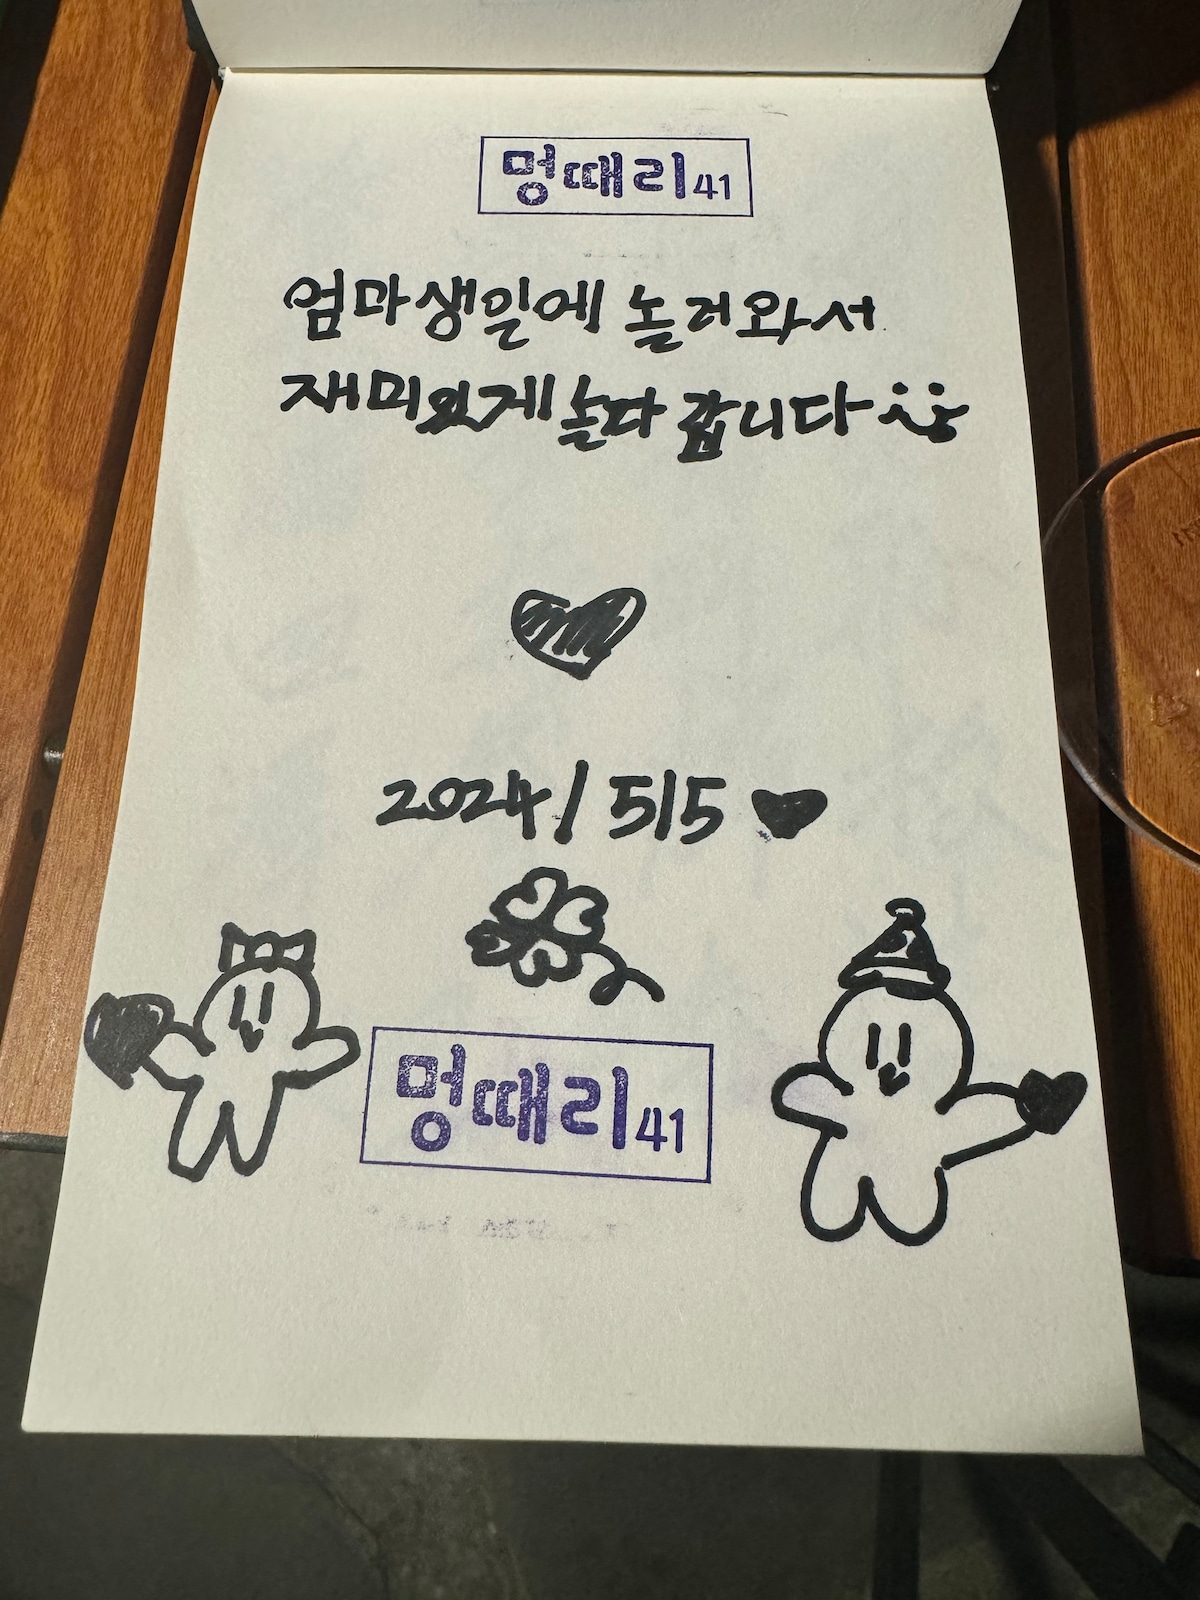 멍때리 41
엄마 생일에 놀러와서
재미있게 놀다 갑니다
2024/5/5
멍때리 41